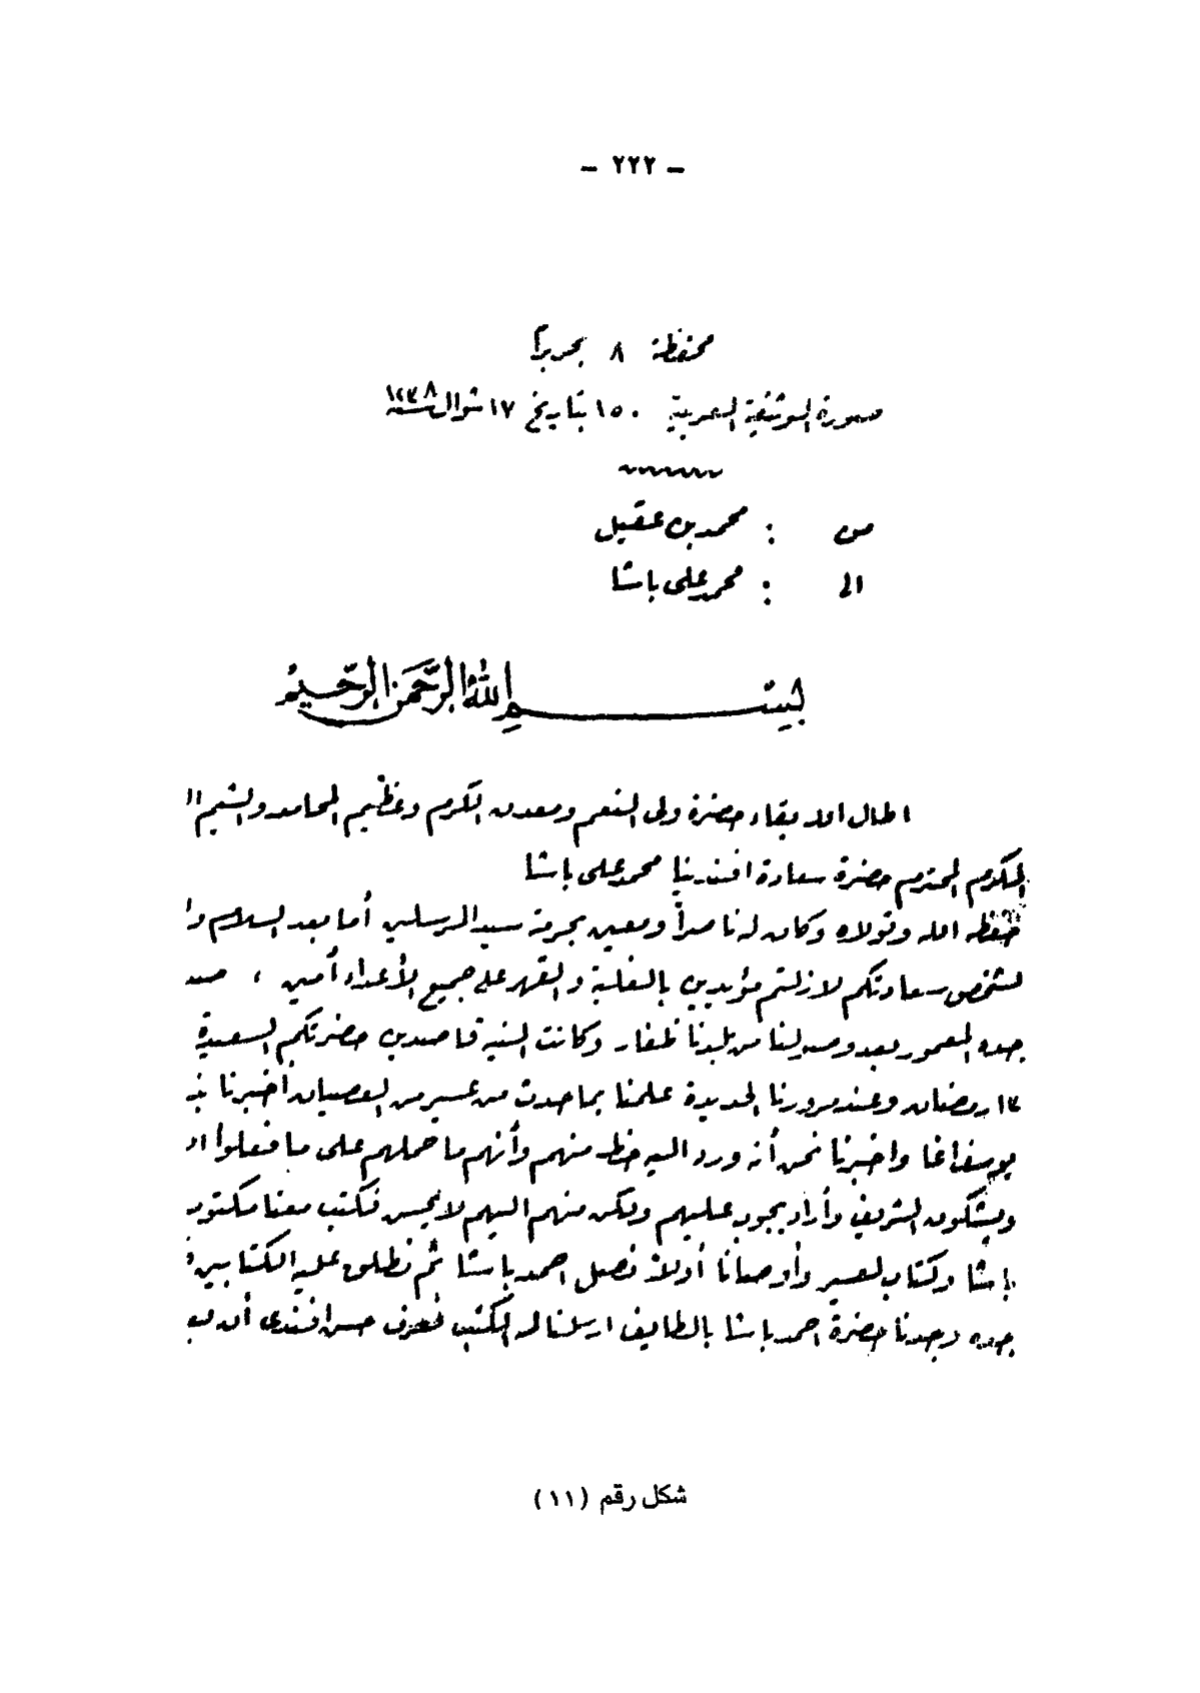 - ٢٢٢ -
محفظة ٨ بحربرا
صورة الوثيقة العربية ١٥٠ بتاريخ ١٧ شوال سنة ١٢٣٨
من : محمد بن عقيل
الى : محمد على باشا
بسم الله الرحمن الرحيم
اطال الله بقاء حضرة ولى النعم ومعدن الكرم وعظيم المحامد والشيم ال
المكرم المحترم حضرة سعادة افندينا محمد على باشا
حفظه الله وتولاه وكان له ناصراً ومعين بحرمة سيد المرسلين أما بعد السلام وا
لشخص سعادتكم لازلتم مؤيدين بالغلبة والقهر على جميع الأعداء أمين ، صد
جده المعمور بعد وصولنا من بلدنا ظفار وكانت النية قاصدين حضرتكم السعيدة
١٢ رمضان وعند مرورنا الحديدة علمنا بما حدث من عسير من العصيان أخبرنا بذ
يوسف اغا واخبرنا نحن أنه ورد اليه خط منهم وأنهم ما حملهم على ما فعلوا ا
ويشكون الشريف وأراد يجوب عليهم ولكن منهم اليهم لا يحسن فكتب معنا مكتوب
باشا وكتاب لعسير وأوصانا أولاً نصل احمد باشا ثم نطلق عليه الكتابين و
جده وجدنا حضرة احمد باشا بالطايف ارسلنا له الكتب فعرف حسن افندى أن
شكل رقم (١١)